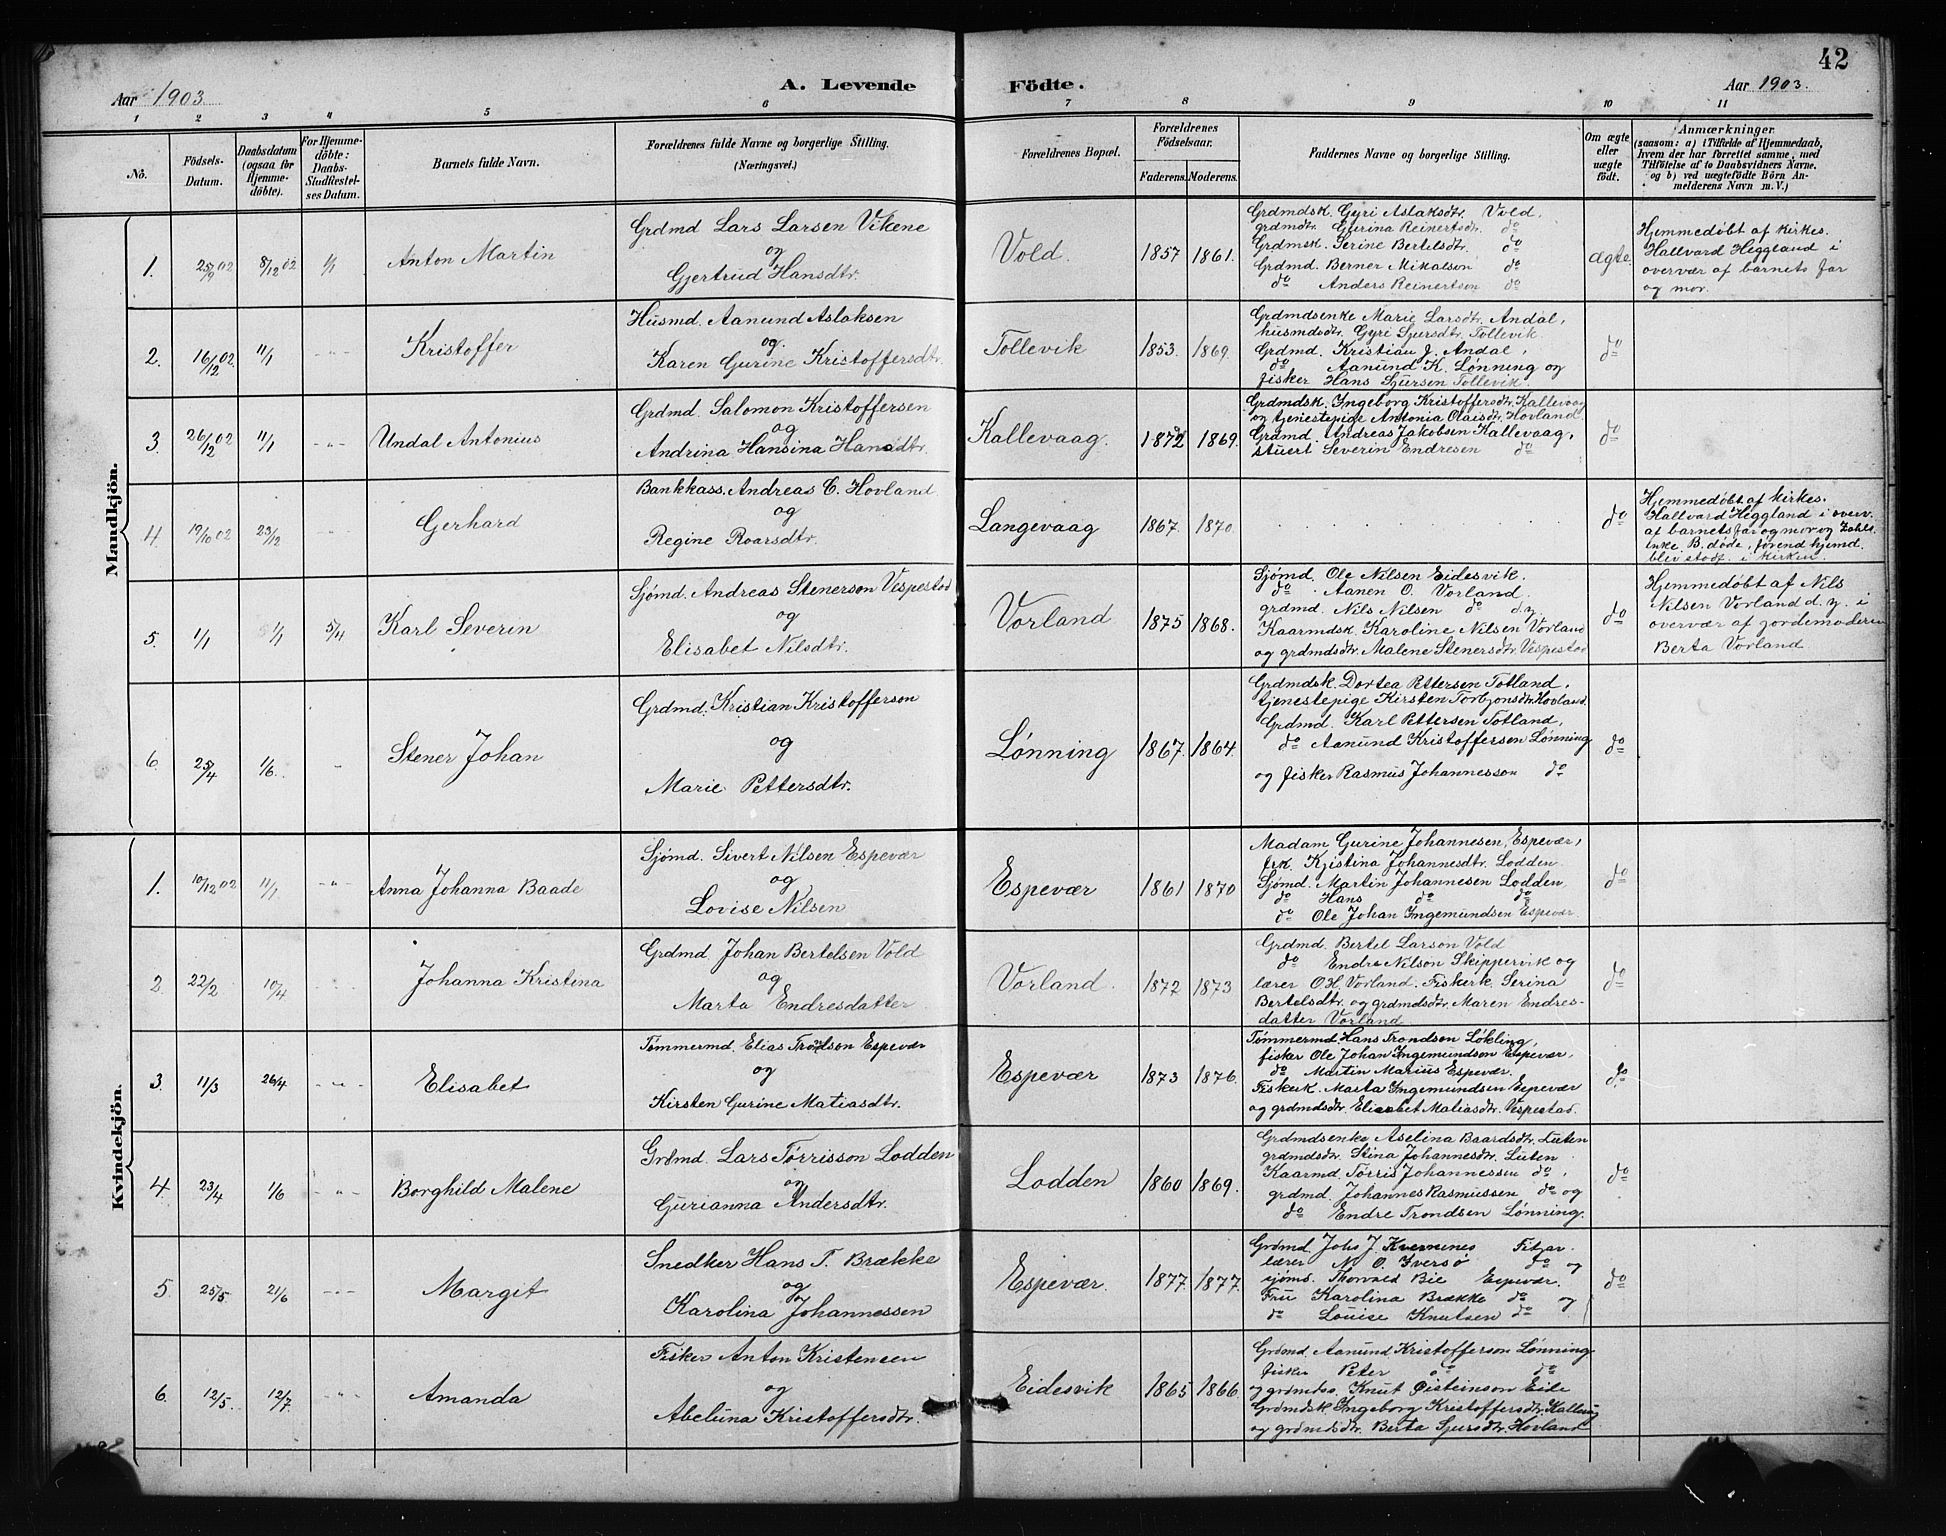 42
Aar 1903.
A. Levende Födte.
Aar 1903.
1 2 3 4 5 6 7 8 9 10 11
No.
Födsels-
Datum.
Daabsdatum
(ogsaa for
Hjemme-
döbte).
For Hjemme-
döbte:
Daabs-
Stadfæstel-
ses Datum.
Barnets fulde Navn.
Forældrenes fulde Navne og borgerlige Stilling.
(Næringsvei.)
Forældrenes Bopæl.
Forældrenes
Födselsaar.
Faderens. Moderens.
Faddernes Navne og borgerlige Stilling.
Om ægte
eller
uægte
født.
Anmærkninger
(saasom: a) i Tilfælde af Hjemmedaab,
hvem der har forrettet samme, med
Tilföielse af to Daabsvidners Navne.
og b) ved uægtefödte Börn An-
melderens Navn m. V.)
Mandkjön.
1. 25/9 02 8/12 02 1/1 Anton Martin
Grdmd Lars Larsen Vikene
og
Gjertrud Hansdtr.
Vold. 1857 1861.
Grdmdsk. Gyri Aslaksdtr. Vold,
grdmdtr. Gurina Reinertsdtr. do
Grdmsk. Serine Bertelsdtr. do
Grdmd. Berner Mikalson do
do Anders Reinertson do
ægte.
Hjemmedøbt af kirkes.
Hallvard Heggland i
overvær af barnets far
og mor.
2. 16/12 02. 11/1 -"- Kristoffer
Husmd. Aanund Aslaksen
og
Karen Gurine Kristoffersdtr.
Tollevik 1853. 1869.
Grdmdsenke Marie Larsdtr. Andal,
husmdsdtr. Gyri Sjursdtr. Tollevik.
Grdmd. Kristian J. Andal,
do Aanund K. Lønning og
fisker Hans Sjursen Tollevik.
do
3. 26/12 02 11/1 -"- Undal Antonius
Grdmd. Salomon Kristoffersen
og
Andrina Hansina Hansdtr.
Kallevaag. 1872 1869.
Grdmdsk. Ingeborg Kristoffersdtr. Kallevaag
og tjenestepige Antonia Olaisdtr. Hovland.
Grdmd. Andreas Jakobsen Kallevaag,
stuert Severin Endresen do
do
4. 19/10 02 23/12 -"- Gerhard
Bankkass. Andreas C. Hovland
og
Regine Roarsdtr.
Langevaag 1867. 1870.
do
Hjemmedøbt af kirkes.
Hallvard Heggland i overv.
af barnets far og mor og
enke. B. døde, førend hjemd.
blev stadf. i kirken.
5. 1/1 1/1 5/4 Karl Severin
Sjømd. Andreas Stenerson Vespestad
og
Elisabet Nilsdtr.
Vorland 1875 1868.
Sjømd. Ole Nilsen Eidesvik.
do Aanen O. Vorland.
grdmd. Nils Nilsen do d.y.
Kaarmdsk. Karoline Nilsen Vorland
og grdmdsdtr. Malene Stenersdtr. Vespestad
do
Hjemmedøbt af Nils
Nilsen Vorland d. y. i
overvær af jordemoderen
Berta Vorland
6. 25/4 1/6. - Stener Johan
Grdmd. Kristian Kristofferson
og
Marie Pettersdtr.
Lønning 1867. 1864.
Grdmdsk. Dortea Pettersen Totland,
tjenestepige Kirsten Torbjonsdtr. Hovland.
Grdmd. Karl Pettersen Totland,
do Aanund Kristoffersen Lønning
og fisker Rasmus Johannesson do
do
Kvindekjön.
1. 10/12 02 11/1 -"- Anna Johanna Baade
Sjømd. Sivert Nilsen Espevær
og
Lovise Nilsen
Espevær 1861 1870
Madam Gurine Johannesen, Espevær,
frk. Kjistina Johannesdtr. Lodden.
Sjømd. Martin Johannesen Lodden,
do Hans do do
do Ole Johan Ingemundsen Espevær.
do
2. 22/2 10/4 -"- Johanna Kristina
Grdmd Johan Bertelsen Vold
og
Marta Endresdatter
Vorland. 1872 1873
Grdmd. Bertel Larson Vold
do Endre Nilson Skippervik og
lærer O.H. Vorland. Fiskerk. Serina
Bertelsdtr. og grdmdsdtr. Maren Endres-
datter Vorland
do
3. 11/3 26/4 -"- Elisabet
Tømmermd. Elias Trondson Espevær
og
Kirsten Gurine Matiasdtr.
Espevær 1873 1876.
Tømmermd Hans Trondson Løkling,
fisker Ole Johan Ingemundson Espevær,
do Martin Marius Espevær.
Fiskerk. Marta Ingemundsen Espevær
og grdmdsdtr. Elisabet Matiasdtr. Vespestad.
do
4. 23/4 1/6 -"- Borghild Malene
Grdmd. Lars Tørrisson Lodden
og
Gurianna Andersdtr.
Lodden 1860 1869.
Grdmdsenke Aselina Baardsdtr. Luten
grdmdsdtr. Stina Johannesdtr. Luten
Kaarmd. Tørris Johannessen do,
grdmd. Johannes Rasmussen do og
do Endre Trondsen Lønning.
do
5. 25/5. 21/6 -"- Margit
Snedker Hans T. Brække
og
Karolina Johannessen
Espevær. 1877. 1877.
Grdmd. Johs J. Kvernenes Fitjar.
lærer M. O. Iversø do og
sjømd. Thorvald Bie Espevær.
Fru Karolina Brække do og
do Louise Knutsen do
do
6. 12/5. 12/7 -"- Amanda
Fisker Anton Kristensen
og
Abeluna Kristoffersdtr.
Eidesvik 1865 1866
Grdmd Aanund Kristofferson Lønning
fisker Peter do do
og grdmdss. Knut Øisteinson Eide
Grdmdsk. Ingeborg Kristoffersdtr. Kallevag
og grdmdsdtr. Berta Sjursdtr. Hovland